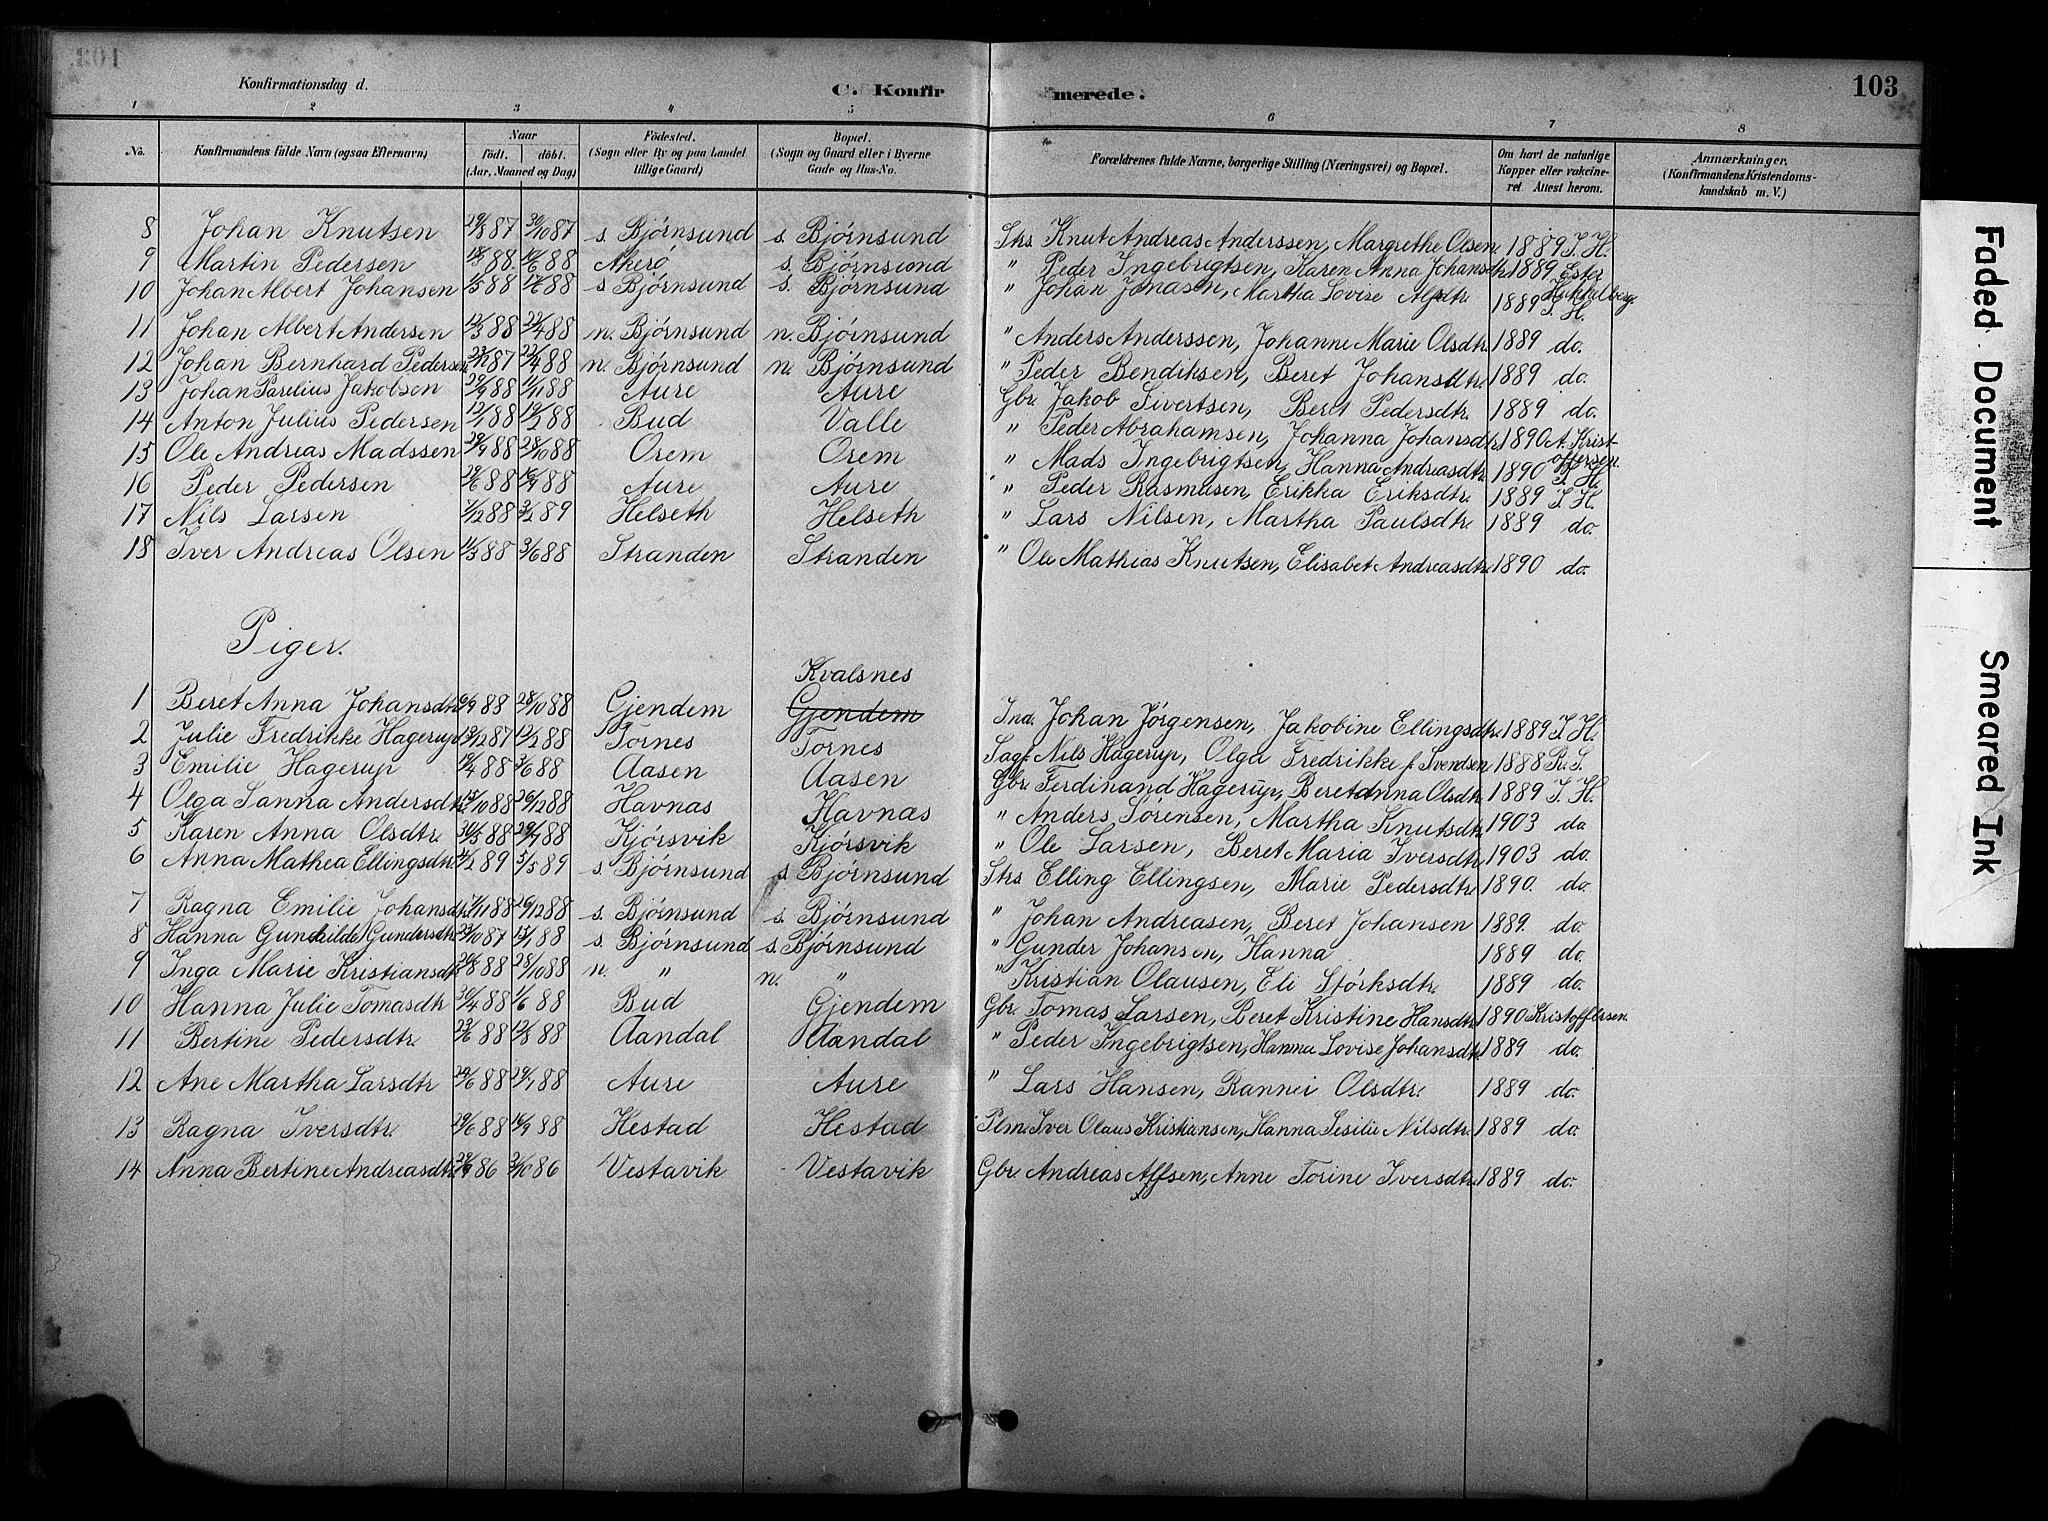 103
Konfirmationsdag d.
C. Konfirmerede.
1 2 3 4 5 6 7 8
No.
Konfirmandens fulde Navn (ogsaa Efternavn)
Naar
födt. döbt.
(Aar, Maaned og Dag)
Födested.
(Sogn eller By og paa Landet
tillige Gaard)
Bopæl.
(Sogn og Gaard eller i Byerne
Gade og Hus-No.
Forældrenes fulde Navne, borgerlige Stilling (Næringsvei) og Bopæl.
Om havt de naturlige
Kopper eller vakcine-
ret. Attest herom.
Anmærkninger.
(Konfirmandens Kristendoms-
kundskab m. V.)
8 Johan Knutsen 29/8 87 30/10 87 s. Bjørnsund s. Bjørnsund Strs. Knut Andreas Anderssen, Margrethe Olsen. 1889 I. H.
9 Martin Pedersen 88 88 Akerø s. Bjørnsund " Peder Ingebrigtsen, Karen Anna Johansdtr. 1889 Ester
10 Johan Albert Johansen 88 88 s Bjørnsund s. Bjørnsund " Johan Jonasen, Martha Lovise 1889 I. H.
11 Johan Albert Andersen 12/3 88 22/4 88 n. Bjørnsund n. Bjørnsund " Anders Anderssen, Johanne Marie Olsdtr. 1889 do.
12 Johan Bernhard Pedersen 87 22/4 88 n. Bjørnsund n. Bjørnsund " Peder Bendiksen, Beret Johansdtr. 1889 do.
13 Johan Parelius Jakobsen 88 11/11 88 Aure Aure Gbr. Jakob Sivertsen, Beret Pedersdtr. 1889 do.
14 Anton Julius Pedersen 12/1 88 19/2 88 Bud Valle " Peder Abrahamsen, Johanna Johansdtr. 1890 A. Krist-
offersen
15 Ole Andreas Madssen 29/9 88 28/10 88 Orem Orem " Mads Ingebrigtsen, Hanna Andreasdtr. 1890 I. H.
16 Peder Pedersen 88 88 Aure Aure " Peder Rasmusen, Erikka Eriksdtr. 1889 I. H.
17 Nils Larsen 1/12 88 3/2 89 Helseth Helseth " Lars Nilsen, Martha Paulsdtr. 1889 do.
18 Iver Andreas Olsen 11/3 88 3/6 88 Stranden Stranden " Ole Mathias Knutsen, Elisabet Andreasdtr. 1890 do.
Piger.
Kvalsnes
1 Beret Anna Johansdtr. 88 28/10 88 Gjendem Gjendem Ind. Johan Jørgensen, Jakobine Ellingsdtr. 1889 I. H.
2 Julie Fredrikke Hagerup 87 12/2 88 Tornes Tornes Sagf. Nils Hagerup, Olga Fredrikke f. Svendsen 1888 R. S.
3 Emilie Hagerup 19/4 88 3/6 88 Aasen Aasen Gbr. Ferdinand Hagerup, Beret Anna Olsdtr. 1889 I. H.
4 Olga Sanna Andersdtr. 15/10 88 26/12 88 Havnas Havnas " Anders Sörensen, Martha Knutsdtr. 1903 do
5 Karen Anna Olsdtr. 88 88 Kjørsvik Kjørsvik " Ole Larsen, Beret Maria Iversdtr. 1903 do.
6 Anna Mathea Ellingsdtr. 89 5/5 89 s. Bjørnsund s Bjørnsund Strs Elling Ellingsen, Marie Pedersdtr. 1890. do.
7 Ragna Emilie Johansdtr. 88 26/12 88 s. Bjørnsund s Bjørnsund " Johan Andreasen, Beret Johansen 1889. do.
8 Hanna Gunhilde Gundersdtr. 87 15/1 88 s. Bjørnsund s. Bjørnsund " Gunder Johansen, Hanna 1889 do.
9 Inga Marie Kristiansdtr. 88 28/10 88 n. " n. " " Kristian Olausen, Eli Störksdtr. 1889 do.
10 Hanna Julie Tomasdtr. 30/4 88 1/6 88 Bud Gjendem Gbr. Tomas Larsen, Beret Kristine Hansdtr. 1890 Kristoffersen
11 Bertine Pedersdtr. 88 12/8 88 Aandal Aandal " Peder Ingebrigtsen, Hanna Lovise Johansdtr. 1889 do.
12 Ane Martha Larsdtr 88 88 Aure Aure " Lars Hansen, Rannei Olsdtr. 1889 do.
13 Ragna Iversdtr. 29/6 88 16/9 88 Hestad Hestad Plm. Iver Olaus Kristiansen, Hanna Sisilie Nilsdtr. 1889 do.
14 Anna Bertine Andreasdtr. 86 3/10 86 Vestavik Vestavik Gbr. Andreas Affsen, Anne Torine Iversdtr. 1889 do.
Faded Document
Smeared Ink